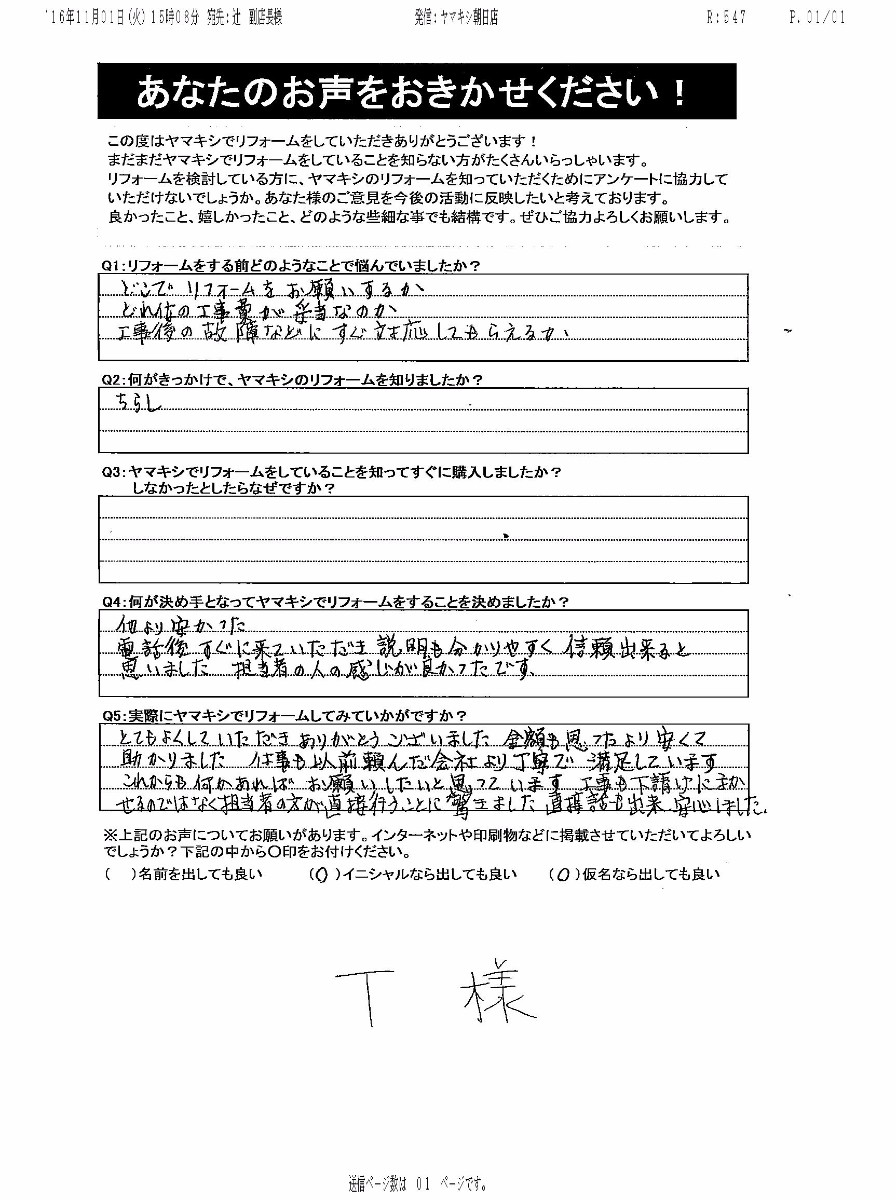 '16年11月01日(火)15時08分 宛先:辻 副店長様 発信:ヤマキシ朝日店 R:547 P.01/01
あなたのお声をおきかせください！
この度はヤマキシでリフォームをしていただきありがとうございます！
まだまだヤマキシでリフォームをしていることを知らない方がたくさんいらっしゃいます。
リフォームを検討している方に、ヤマキシのリフォームを知っていただくためにアンケートに協力して
いただけないでしょうか。あなた様のご意見を今後の活動に反映したいと考えております。
良かったこと、嬉しかったこと、どのような些細な事でも結構です。ぜひご協力よろしくお願いします。
Q1:リフォームをする前どのようなことで悩んでいましたか？
どこでリフォームをお願いするか
どれ位の工事費が妥当なのか
工事後の故障などにすぐ対応してもらえるか
Q2:何がきっかけで、ヤマキシのリフォームを知りましたか？
ちらし
Q3:ヤマキシでリフォームをしていることを知ってすぐに購入しましたか？
しなかったとしたらなぜですか？
Q4:何が決め手となってヤマキシでリフォームをすることを決めましたか？
他より安かった
電話後すぐに来ていただき 説明も分かりやすく 信頼出来ると
思いました 担当者の人の感じが良かったです、
Q5:実際にヤマキシでリフォームしてみていかがですか？
とてもよくしていただき ありがとうございました 金額も思ったより安くて
助かりました 仕事も以前頼んだ会社より丁寧で 満足しています
これからも何かあれば お願いしたいと思っています 工事も下請けにまか
せるのではなく担当者の方が直接行うことに驚きました 直接話も出来 安心しました、
※上記のお声についてお願いがあります。インターネットや印刷物などに掲載させていただいてよろしい
でしょうか？下記の中から〇印をお付けください。
( )名前を出しても良い (〇)イニシャルなら出しても良い (〇)仮名なら出しても良い
T 様
送信ページ数は 01 ページです。